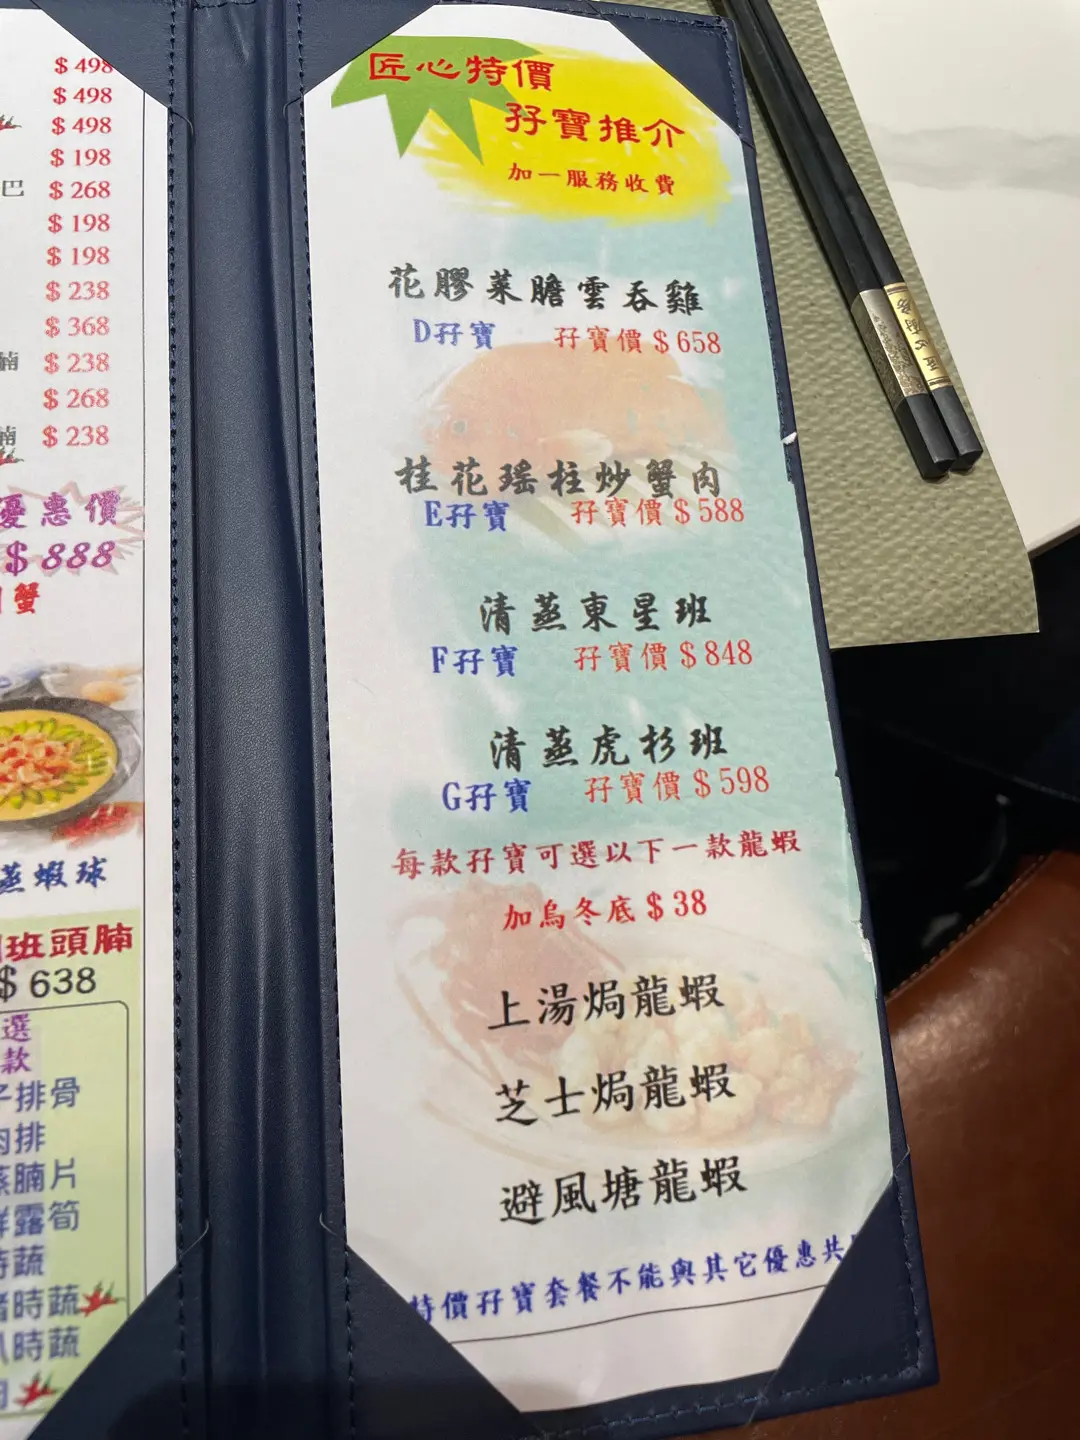 $ 498
$ 498
$ 498
$ 198
巴 $ 268
$ 198
$ 198
$ 238
$ 368
腩 $ 238
$ 268
腩 $ 238
優惠價
$ 888
蟹
蒸蝦球
班頭腩
$ 638
選
款
子排骨
肉排
蒸腩片
鮮露筍
時蔬
時蔬
扒時蔬
匠心特價
孖寶推介
加一服務收費
花膠菜膽雲吞雞
D孖寶 孖寶價 $ 658
桂花瑤柱炒蟹肉
E孖寶 孖寶價 $ 588
清蒸東星班
F孖寶 孖寶價 $ 848
清蒸虎杉班
G孖寶 孖寶價 $ 598
每款孖寶可選以下一款龍蝦
加烏冬底 $ 38
上湯焗龍蝦
芝士焗龍蝦
避風塘龍蝦
特價孖寶套餐不能與其它優惠共